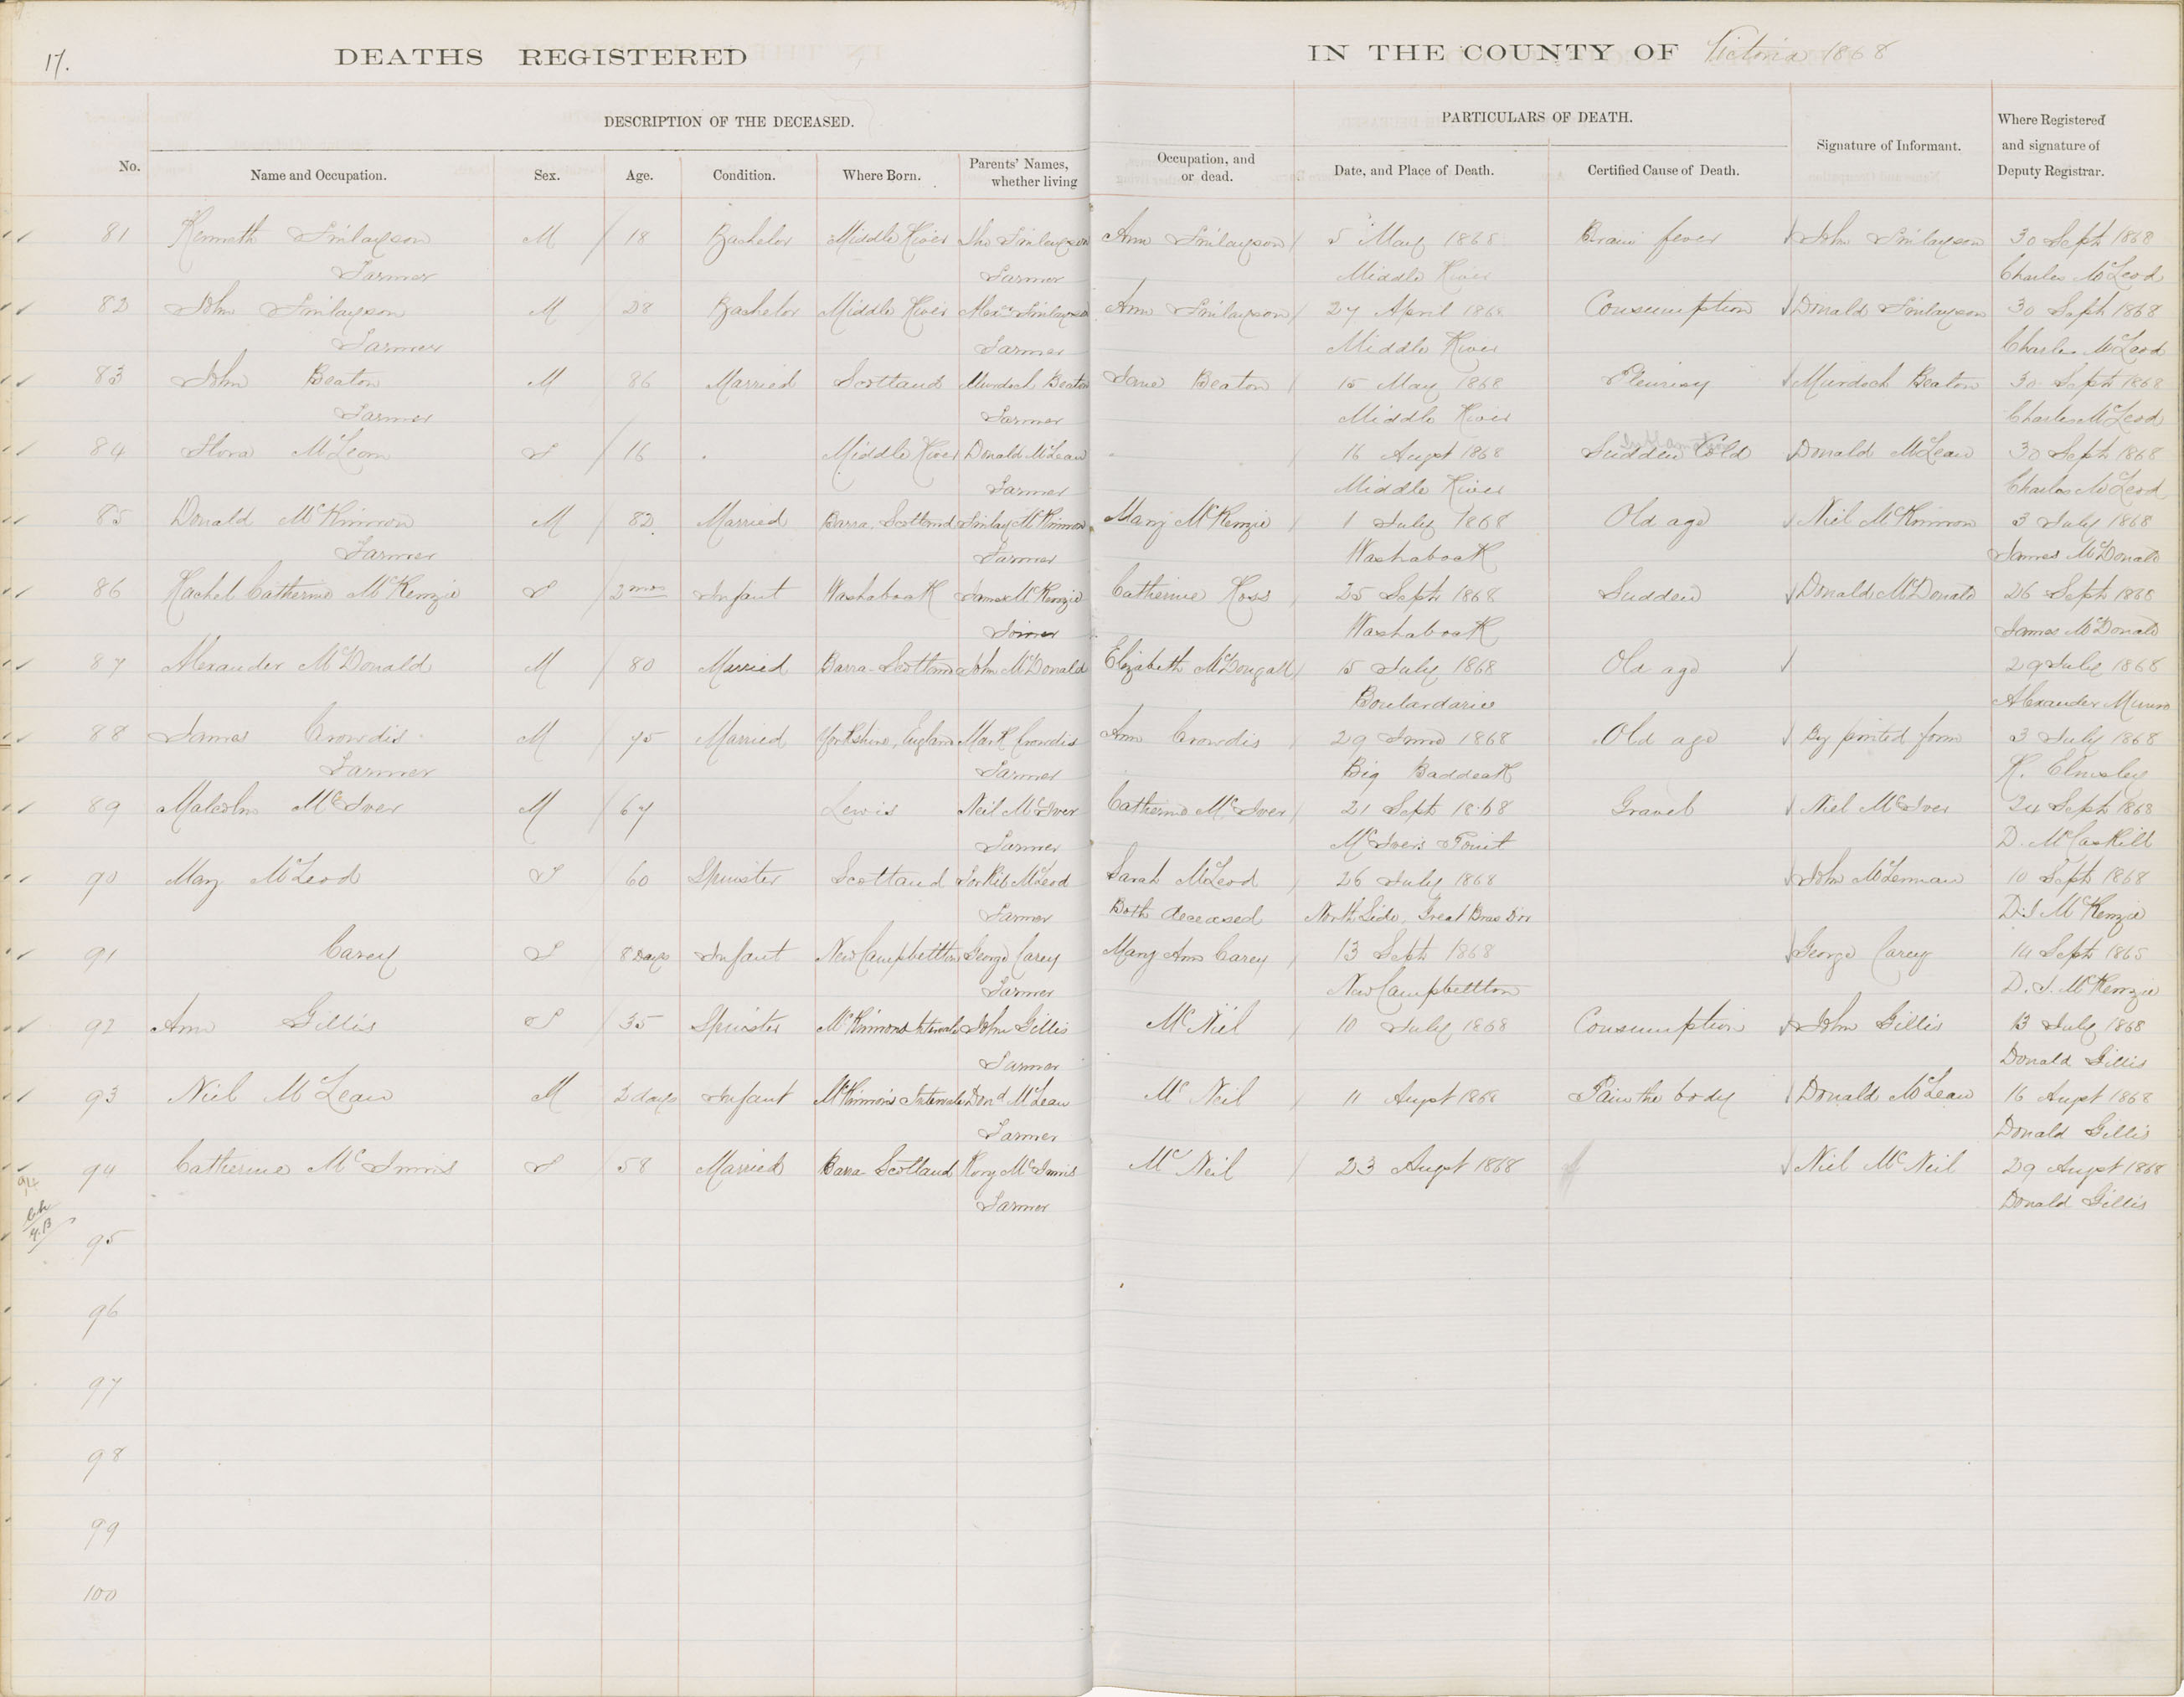 17.
DEATHS REGISTERED IN THE COUNTY OF Victoria 1868
DESCRIPTION OF THE DECEASED. PARTICULARS OF DEATH.
No. Name and Occupation. Sex. Age. Condition. Where Born. Parents' Names, whether living Occupation, and or dead. Date, and Place of Death. Certified Cause of Death. Signature of Informant. Where Registered and signature of Deputy Registrar.
81 Kenneth Finlayson M 18 Bachelor Middle River Jno Finlayson Ann Finlayson 5 May 1868 Brain fever John Finlayson 30 Sept 1868
Farmer Farmer Middle River Charles McLeod
82 John Finlayson M 28 Bachelor Middle River Alexr Finlayson Ann Finlayson 27 April 1868 Consumption Donald Finlayson 30 Sept 1868
Farmer Farmer Middle River Charles McLeod
83 John Beaton M 86 Married Scotland Murdoch Beaton Jane Beaton 15 May 1868 Pleurisy Murdoch Beaton 30 Sept 1868
Farmer Farmer Middle River Charles McLeod
84 Flora McLean F 16 Middle River Donald McLean 16 Augst 1868 Sudden Cold Donald McLean 30 Sept 1868
Farmer Middle River Charles McLeod
85 Donald McKinnon M 82 Married Barra, Scotland Finlay McKinnon Mary McKenzie 1 July 1868 Old age Niel McKinnon 3 July 1868
Farmer Farmer Washaback James McDonald
86 Rachel Catherine McKenzie F 2 mos Infant Washaback James McKenzie Catherine Ross 25 Sept 1868 Sudden Donald McDonald 26 Sept 1868
Joiner Washaback James McDonald
87 Alexander McDonald M 80 Married Barra Scotland John McDonald Elizabeth McDougall 15 July 1868 Old age 29 July 1868
Boulardarie Alexander Munro
88 James Crowdis M 75 Married Yorkshire, England Mark Crowdis Ann Crowdis 29 June 1868 Old age By printed form 3 July 1868
Farmer Farmer Big Baddeck R. Elmsley
89 Malcolm McIver M 67 Lewis Neil McIver Catherine McIver 21 Sept 1868 Gravel Niel McIver 24 Sept 1868
Farmer McIvers Point D. McCaskill
90 Mary McLeod F 60 Spinster Scotland Torkil McLeod Sarah McLeod 26 July 1868 John McLennan 10 Sept 1868
Farmer Both deceased North Side, Great Bras D'or D. J. McKenzie
91 Carey F 8 Days Infant New Campbellton George Carey Mary Ann Carey 13 Sept 1868 George Carey 14 Sept 1868
Farmer New Campbellton D. J. McKenzie
92 Ann Gillis F 35 Spinster McKinnons Intervale John Gillis McNiel 10 July 1868 Consumption John Gillis 13 July 1868
Farmer Donald Gillis
93 Niel McLean M 2 days Infant McKinnons Intervale Dond McLean McNeil 11 Augst 1868 Pain the body Donald McLean 16 Augst 1868
Farmer Donald Gillis
94 Catherine McInnis F 58 Married Barra Scotland Rory McInnis McNeil 23 Augst 1868 Niel McNeil 29 Augst 1868
Farmer Donald Gillis
95
96
97
98
99
100